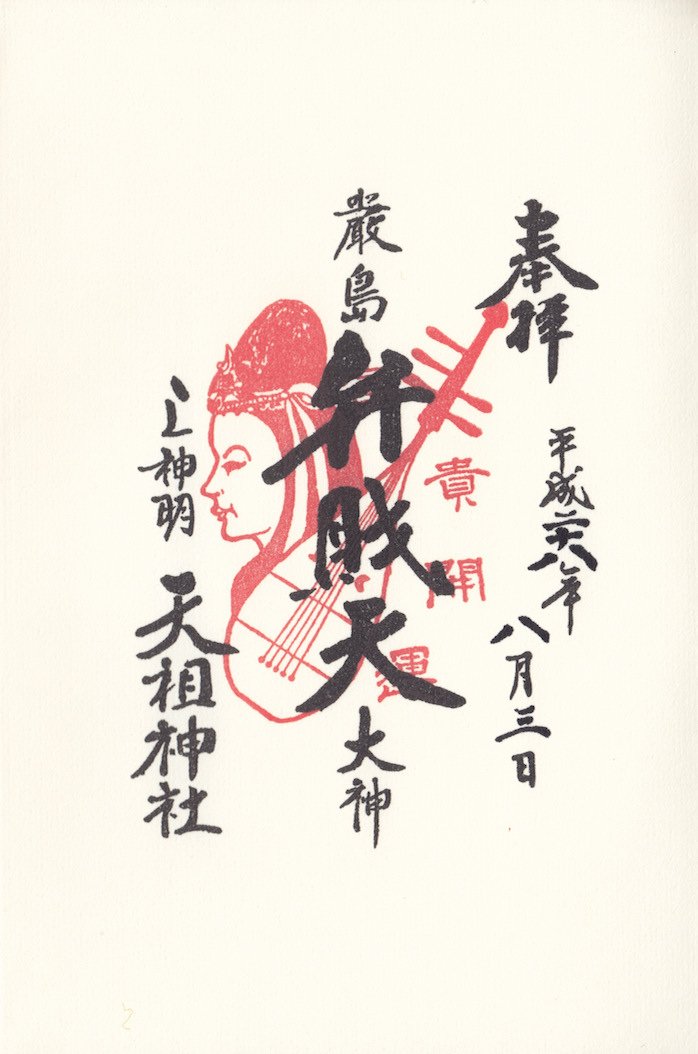 奉拝
平成二十八年
八月三日
嚴島弁戝天大神
貴開運
上神明
天祖神社